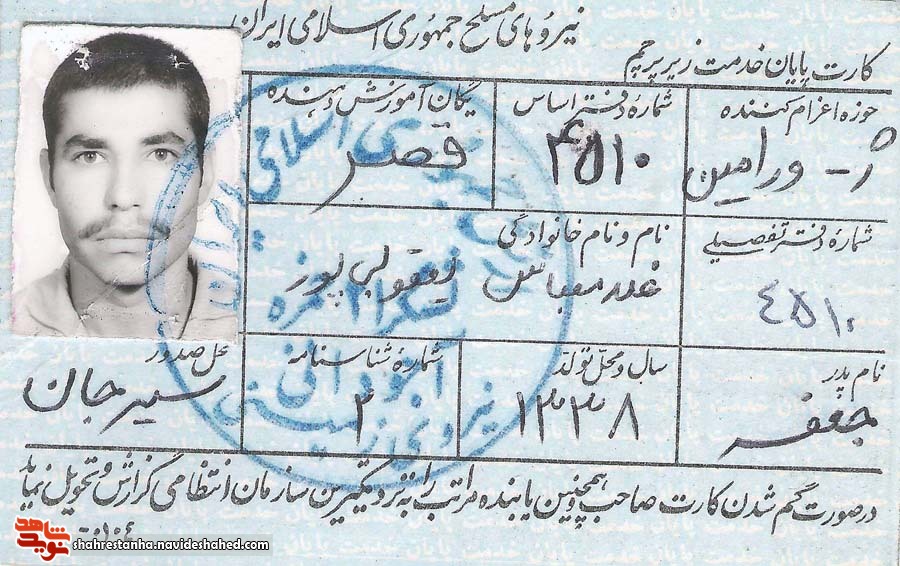 نیروهای مسلح جمهوری اسلامی ایران
کارت پایان خدمت زیر پرچم
حوزه اعزام کننده
ژ - ورامین
شماره دفتر اساس
۴۵۱۰
یگان آموزش دهنده
قصر
شماره دفتر تفصیلی
٤٥١٠
نام و نام خانوادگی
غلامعباس یعقوبی پور
نام پدر
جعفر
سال و محل تولد
۱۳۳۸
شماره شناسنامه
۲
محل صدور
سیرجان
در صورت گم شدن کارت صاحب و همچنین یابنده مراتب را به نزدیکترین سازمان انتظامی گزارش و تحویل نماید
نوید شاهد
shahrestanha.navideshahed.com